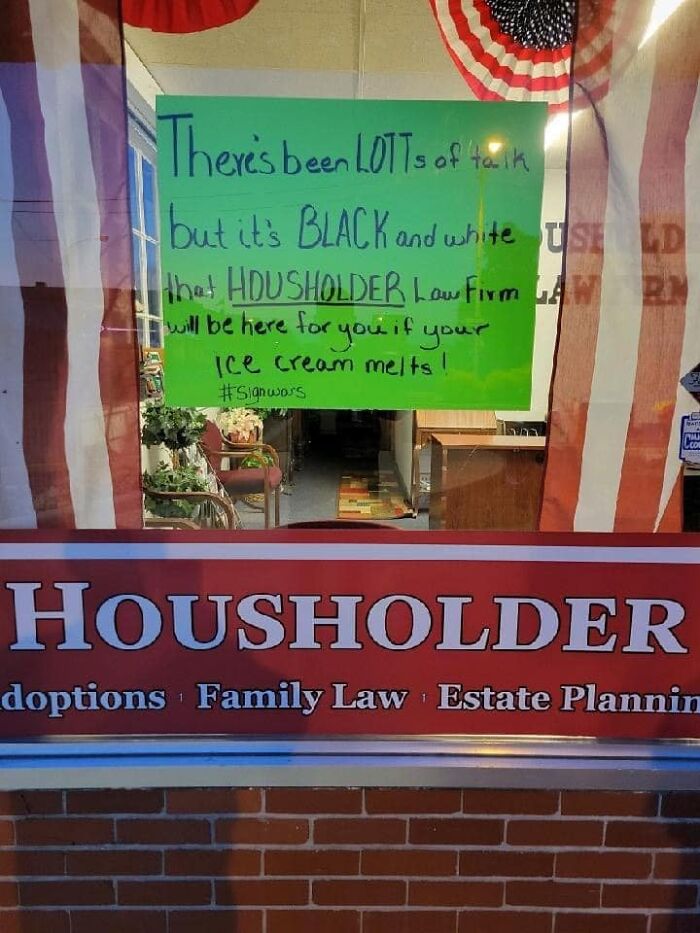 There's been LOTTs of talk
but it's BLACK and white
that HOUSHOLDER Law Firm
will be here for you if your
Ice cream melts!
#Signwars
HOUSHOLDER
doptions Family Law Estate Plannin